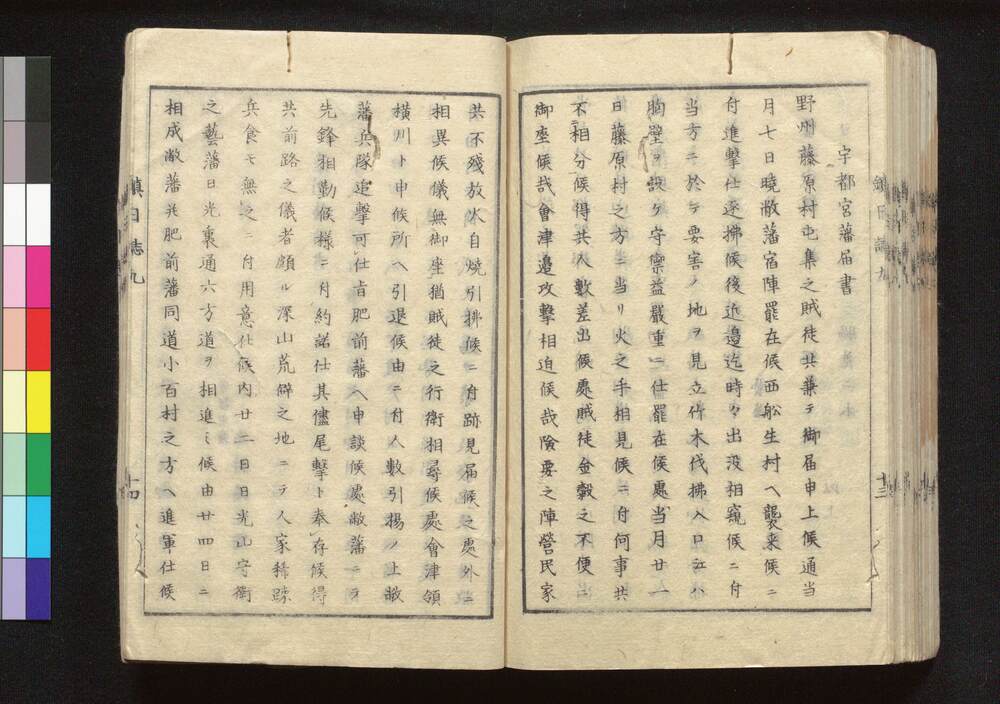 宇都宮藩届書
野州藤原村屯集之賊徒共兼テ御届申上候通当
月七日曉敝藩宿陣罷在候西舩生村ヘ襲来候ニ
付進撃仕逐拂候後近邉迄時々出没相窺候ニ付
当方ニ於テ要害ノ地ヲ見立竹木伐拂入口江ハ
胸壁ヲ設ケ守禦益嚴重ニ仕罷在候處当月廿一
日藤原村之方ニ当リ火之手相見候ニ付何事共
不相分候得共人數差出候處賊徒金穀之不便ニ
御座候哉會津邉攻撃相迫候哉險要之陣營民家
共不殘放火自燒引拂候ニ付跡見届候之處外ニ
相異候儀無御座猶賊徒之行衛相尋候處會津領
横川ト申候所ヘ引退候由ニ付人數引揚ノ上敝
藩兵隊追撃可仕旨肥前藩ヘ申談候處敝藩ニテ
先鋒相勤候様ニ付約諾仕其儘尾撃ト奉存候得
共前路之儀者頗ル深山荒僻之地ニテ人家稀踈
兵食モ無之ニ付用意仕候内廿二日日光山守衛
之藝藩日光裏通六方道ヲ相進ミ候由廿四日ニ
相成敝藩并肥前藩同道小百村之方ヘ進軍仕候
鎮日誌九
十三
鎮日誌九
十四